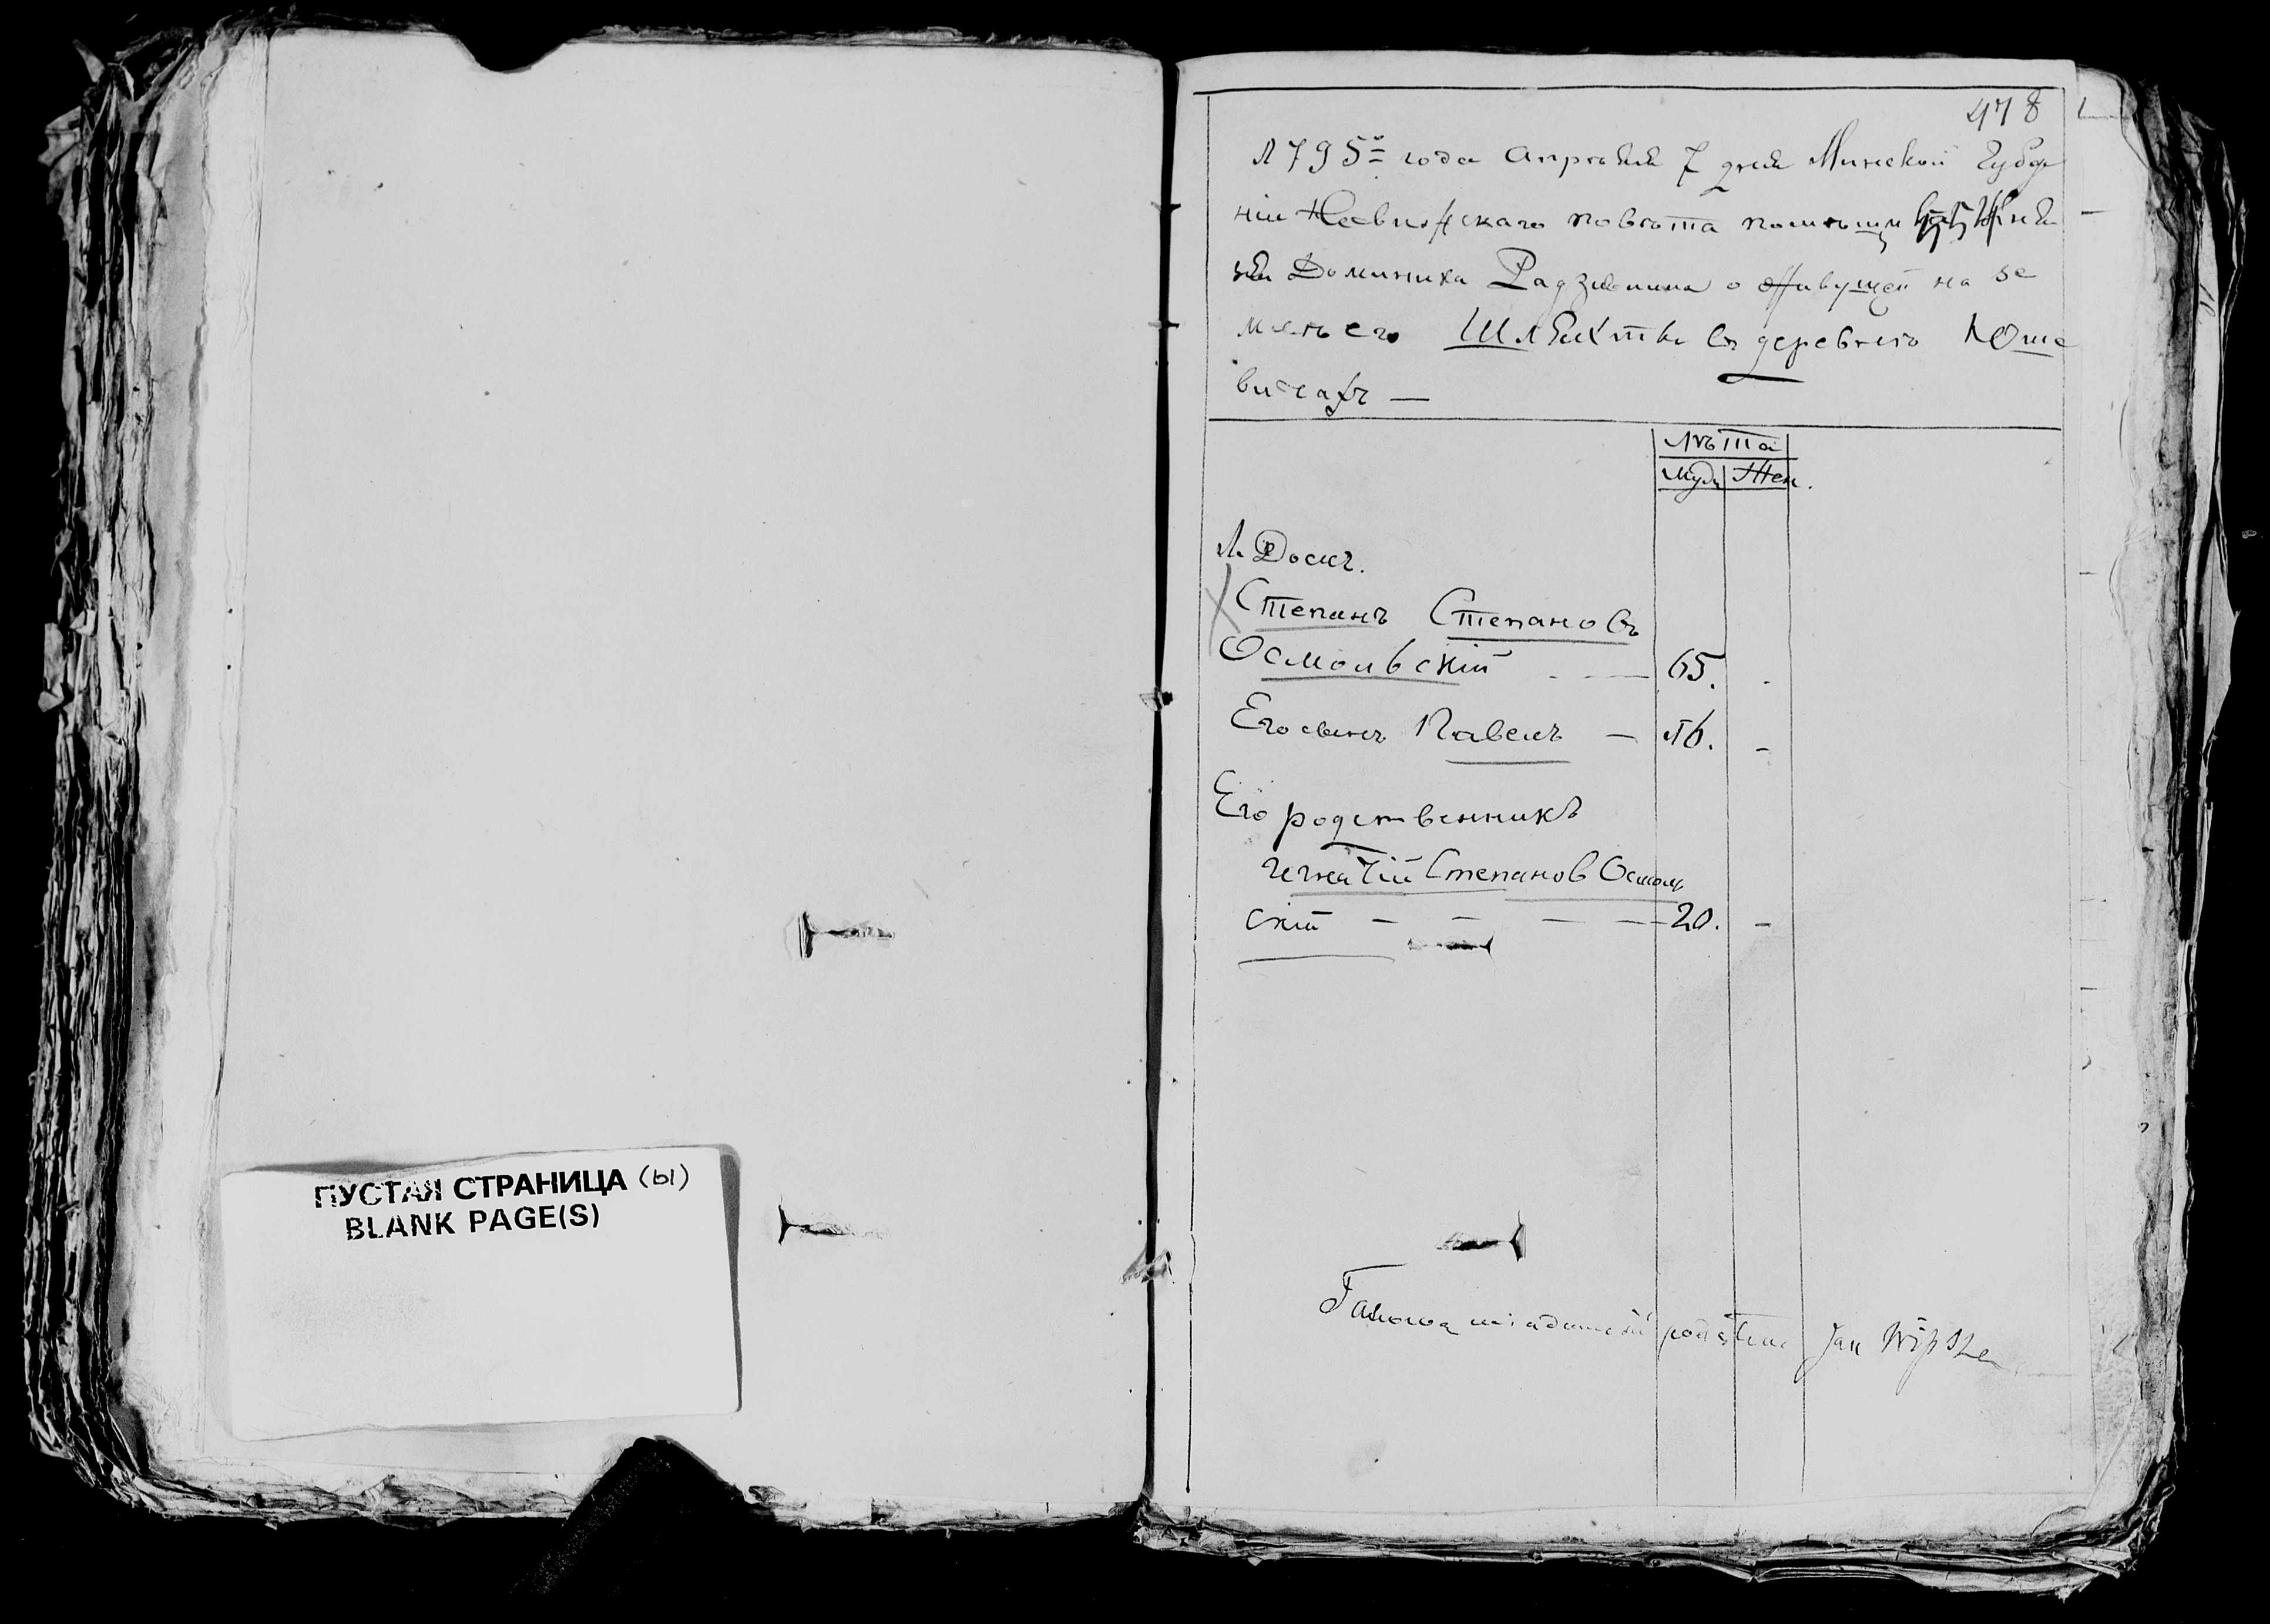 ПУСТАЯ СТРАНИЦА (ы)
BLANK PAGE(S)
478
1795го года Апреля 7 дня Минской Губер
ніи Несвижскаго повѣта помѣщи Кня
зя Доминика Радзивила о живущей на зе
мле его Шляхты въ деревнѣ Юше
вичахъ —
Лѣта
Муж Жен.
1. Домъ.
Степанъ Степановъ
Осмольскій - — 65. -
Его сынъ Павелъ — 16. -
Его родственникъ
Игнатій Степанов Осмоль
скій — — — — 20. -
Jan